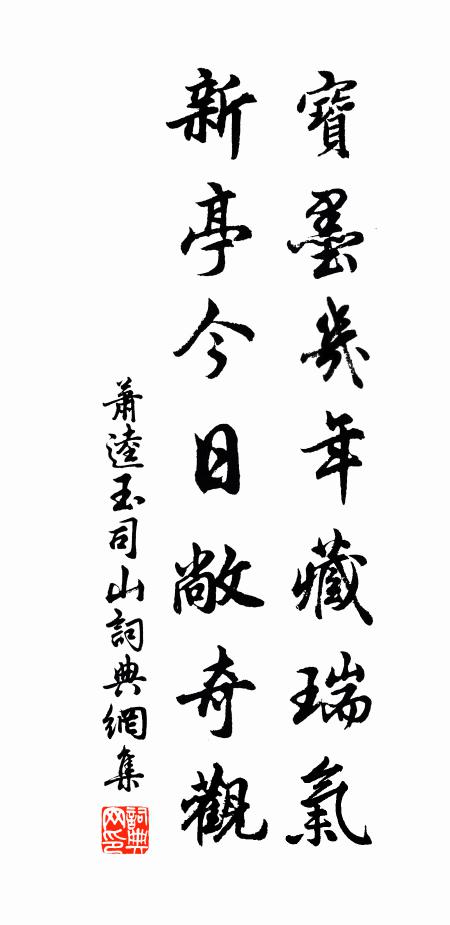 寶墨幾年藏瑞氣
新亭今日敞奇觀
蕭逵玉司山詞典網集
詞典网印